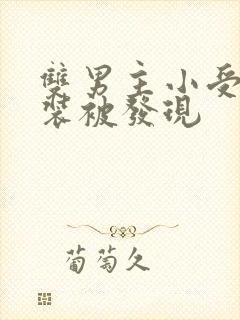 雙男主小受
裝被發現
葡萄久